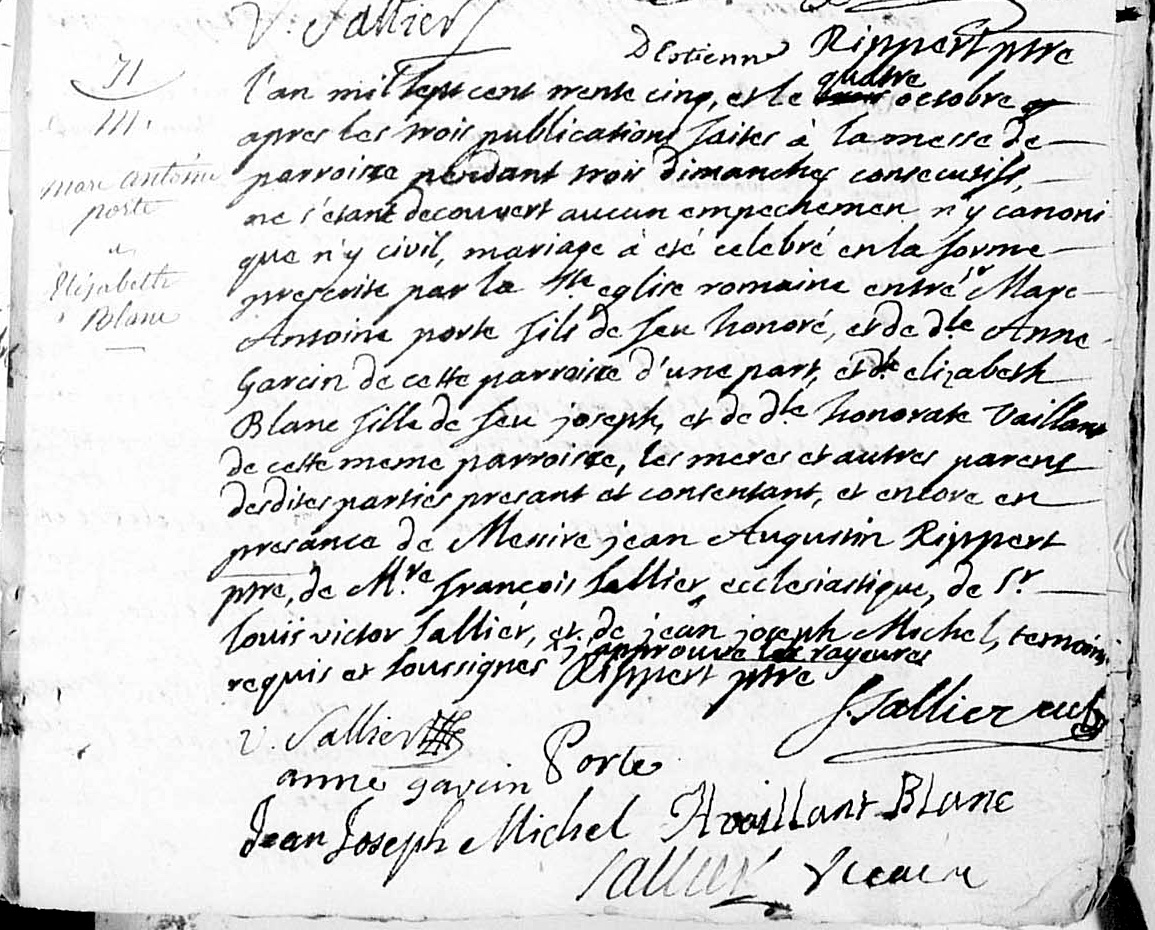 V. Sallier
D'Estienne Rippert ptre
71
M.
Marc Antoine
porte
a
Elisabeth
Blanc
l'an mil sept cent trente cinq, et le quatre octobre
apres les trois publications faites à la messe de
parroisse pendant trois dimanches consecutifs,
ne s'etant decouvert aucun empechemen n'y canoni
que n'y civil, mariage à eté celebré en la forme
prescrite par la ste eglise romaine entre sr Marc
Antoine porte fils de feu honoré, et de dle Anne
Garcin de cette parroisse d'une part, et dle elizabeth
Blanc fille de feu joseph, et de dle honorate Vaillant
de cette meme parroisse, les meres et autres parens
desdites parties presant et consentant, et encore en
presance de Messire jean Augustin Rippert
ptre, de Mre françois Sallier, ecclesiastique, de Sr
louis victor Sallier, et de jean joseph Michel, temoins
requis et soussignés j'approuve les rayeures
Rippert ptre
f. Sallier eccl
V. Sallier
Porte
anne garcin
Jean Joseph Michel H vaillant Blanc
Sallier Vicaire